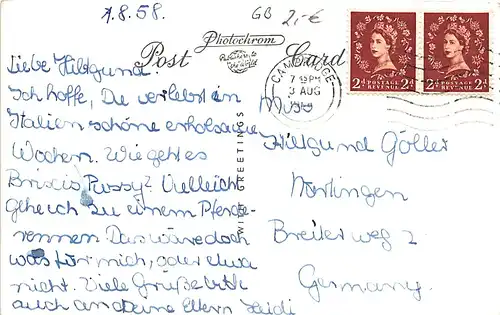 1.8.58.
GB 2,-€
Photochrom
Post Card
CAMBRIDGE
7 15 PM
3 AUG
2D POSTAGE REVENUE 2D
2D POSTAGE REVENUE 2D
WITH GREETINGS
Liebe Hiltgund.
Ich hoffe, Du verlebst in
Italien schöne erholsame
Wochen. Wie geht es
Pussy? Vielleicht
gehe ich zu einem Pferde-
rennen. Das wäre doch
was für mich, oder etwa
nicht. Viele Grüße bitte
auch an deine Eltern Heidi
Miss
Hiltgund Göller
Nörtlingen
Breiler weg 2
Germany.